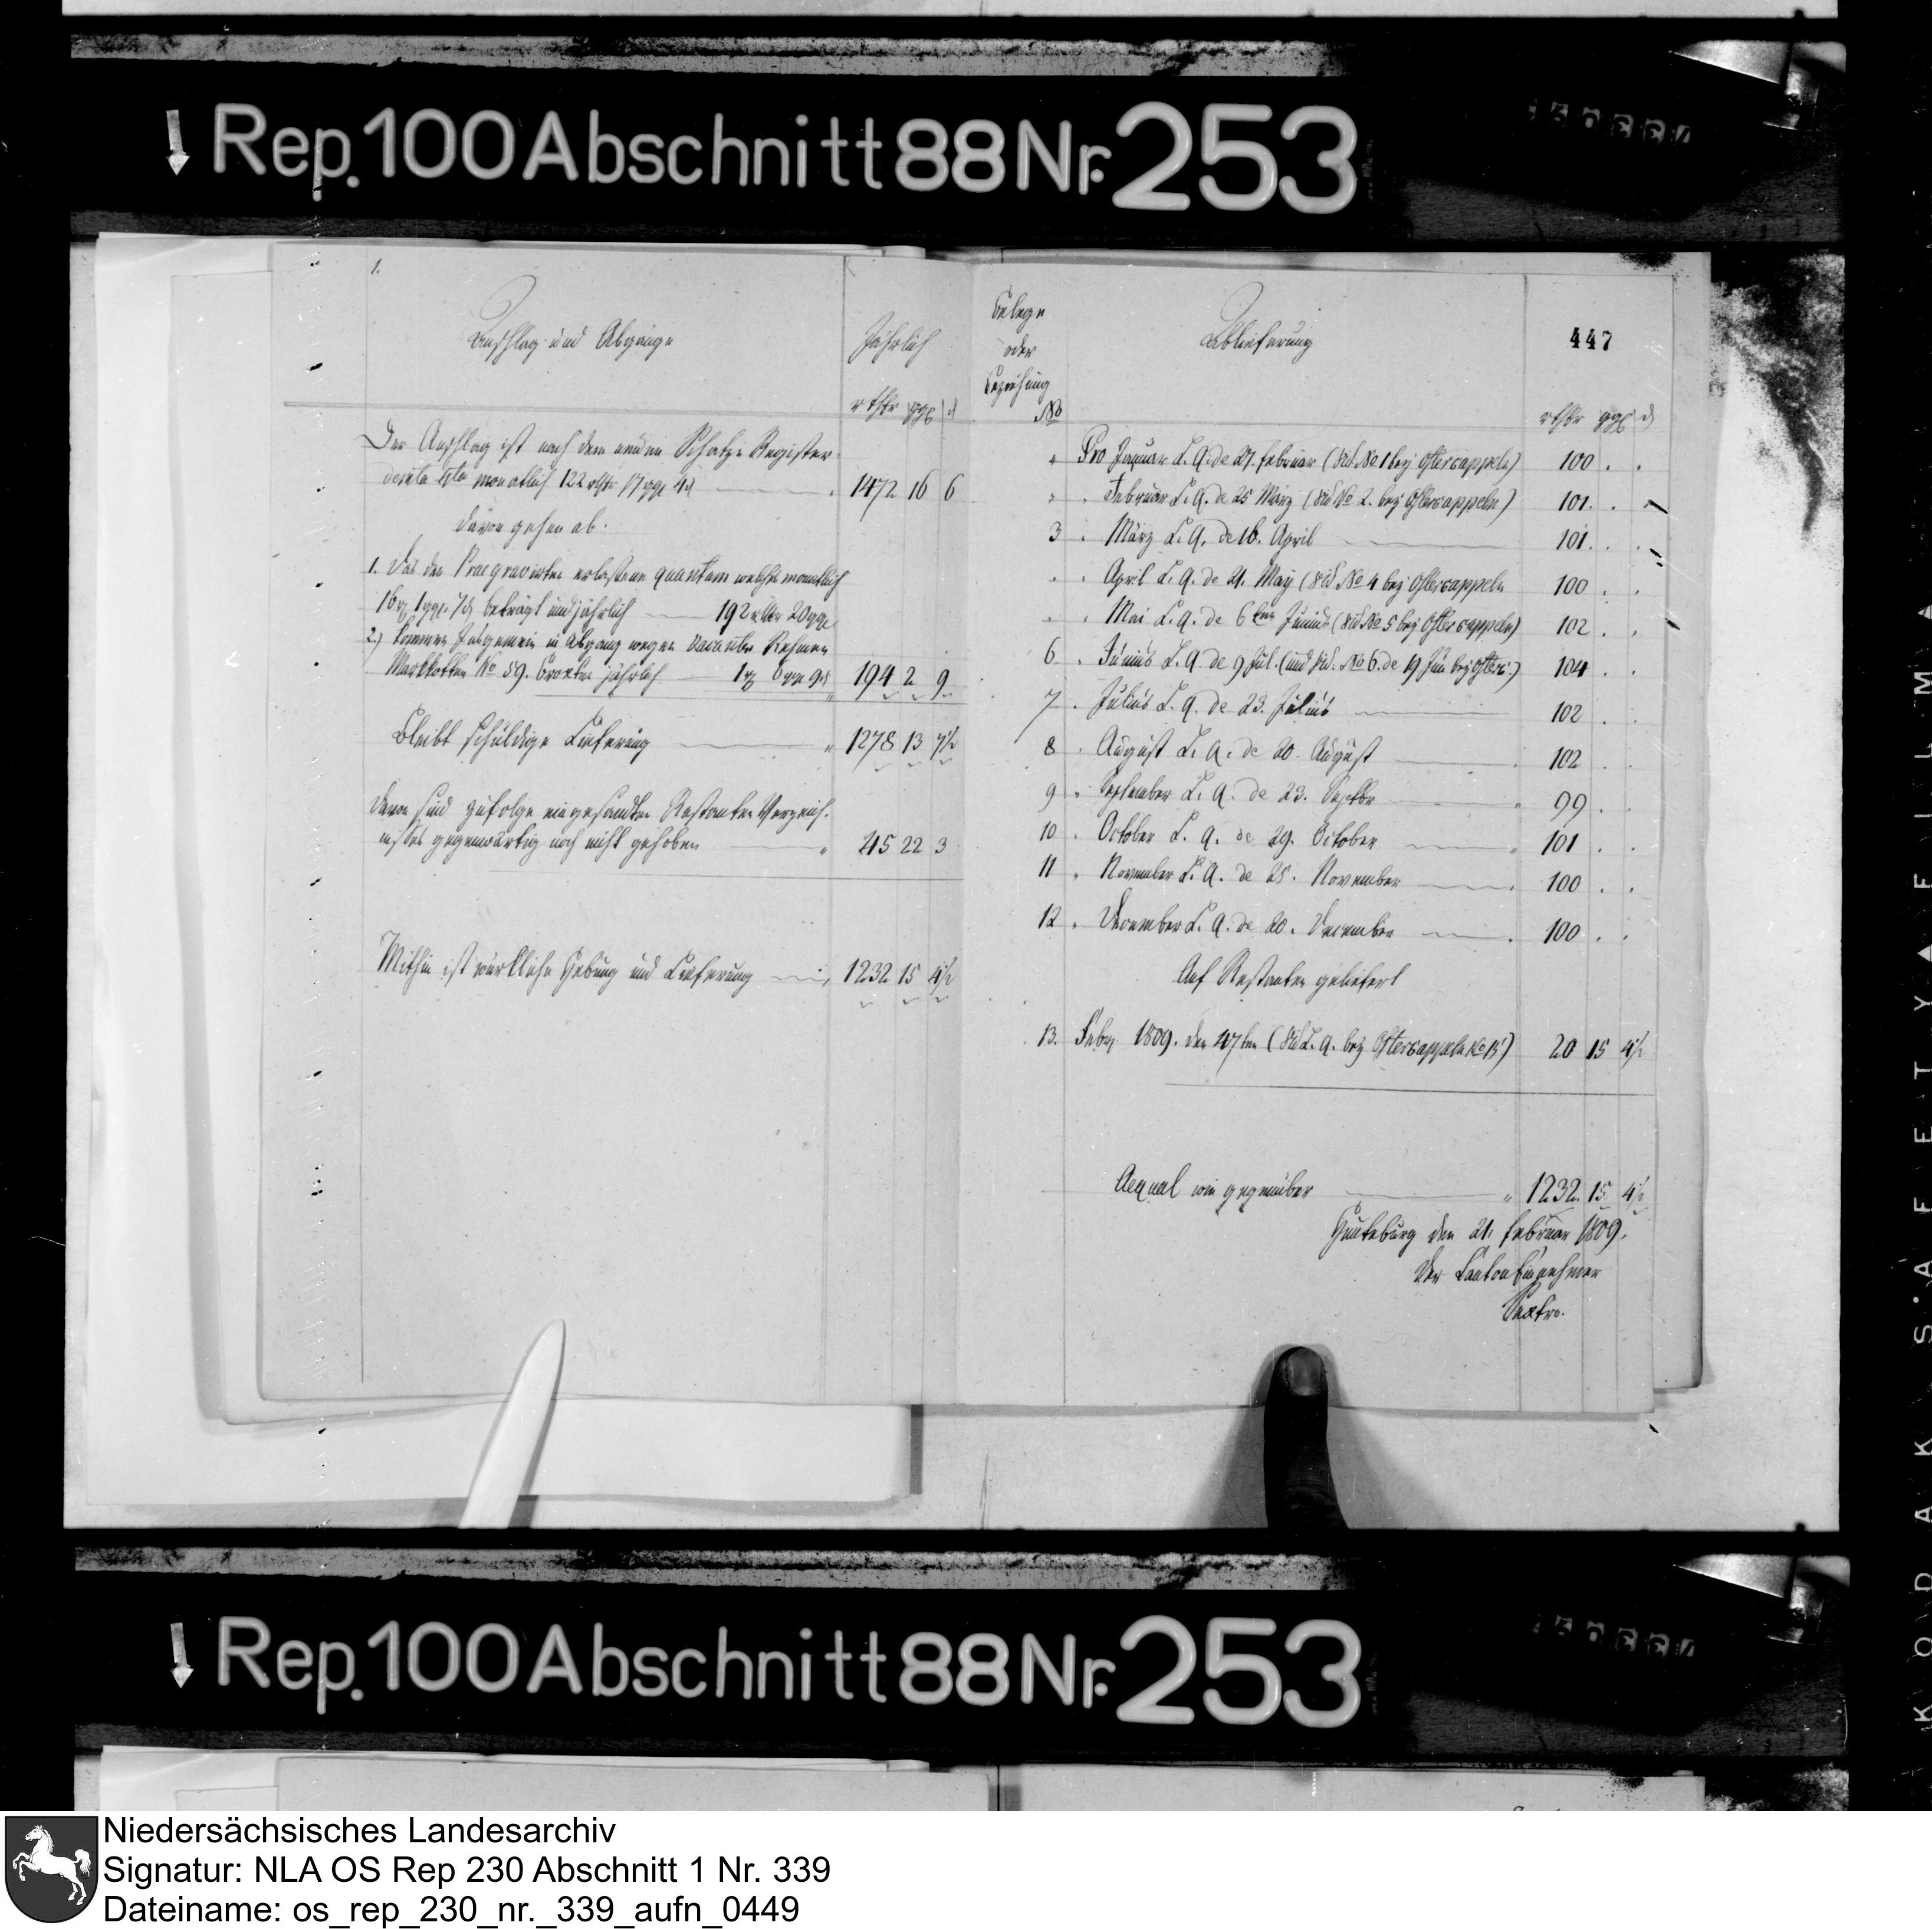 Rep. 100 Abschnitt 88 Nr. 253
1.
Anschlag und Abgänge
Jährlich
rthlr ggl d
Der Anschlag ist nach dem neuen Schatz-Register
monatlich 122 rthlr 17 ggl 4 d 1472 16 6
davon gehen ab.
1. Das den Praegravirten erlassene quantum welches monatlich
16 rt 1 ggl 7 d beträgt und jährlich 192 rthlr 20 ggl
2.) kommen Insgemein in Abgang wegen
Markkotten No 59. jährlich 1 rt 6 ggl 9 d 194 2 9
Bleibt schuldige Lieferung 1278 13 7½
davon sind zufolge eingesandten Restanten Verzeich-
nisses gegenwärtig noch nicht gehoben 45 22 3
Mithin ist würkliche Hebung und Lieferung 1232 15 4½
Belege
oder
Beziehung
No
Ablieferung
447
rthlr ggl d
Pro Januar L. Q. de 27. Februar (vid No 1 bey Ostercappeln) 100 . .
" Februar L. Q. de 25 März (vid No 2. bey Ostercappeln) 101 . .
3 " März L. Q. de 16. April 101 . .
" April L. Q. de 21. May (vid No 4 bey Ostercappeln 100 . .
" Mai L. Q. de 6ten Junius (vid No 5 bey Ostercappeln) 102 . .
6 " Junius L. Q. de 9 Jul. (und vid. No 6. de 19 Jun bey Osterc.) 104 . .
7 " Julius L. Q. de 23. Julius 102 . .
8 " August L. Q. de 20. August 102 . .
9 " September L. Q. de 23. Septbr 99 . .
10 " October L. Q. de 29. October 101 . .
11 " November L. Q. de 25. November 100 . .
12 " December L. Q. de 20. December 100 . .
Auf Restanten geliefert
13. Febr. 1809. den (vid L. Q. bey Ostercappeln No 13) 20 15 4½
Aequal wie gegenüber 1232 15 4½
Hunteburg den 21. Februar 1809.
Der Cantoneinnehmer
Rep. 100 Abschnitt 88 Nr. 253
KODAK SAFETY FILM
Niedersächsisches Landesarchiv
Signatur: NLA OS Rep 230 Abschnitt 1 Nr. 339
Dateiname: os_rep_230_nr._339_aufn_0449